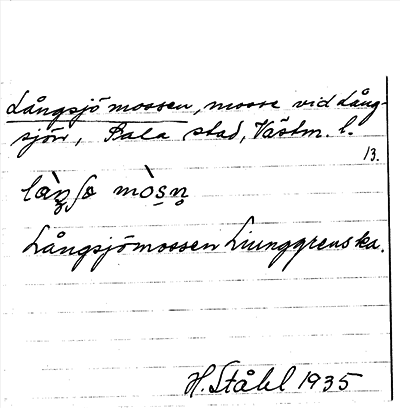 Långsjö mossen, mosse vid Lång-
sjön, Sala stad, Västm. l.
13.
Långsjömossen Ljunggrenska.
H. Ståhl 1935